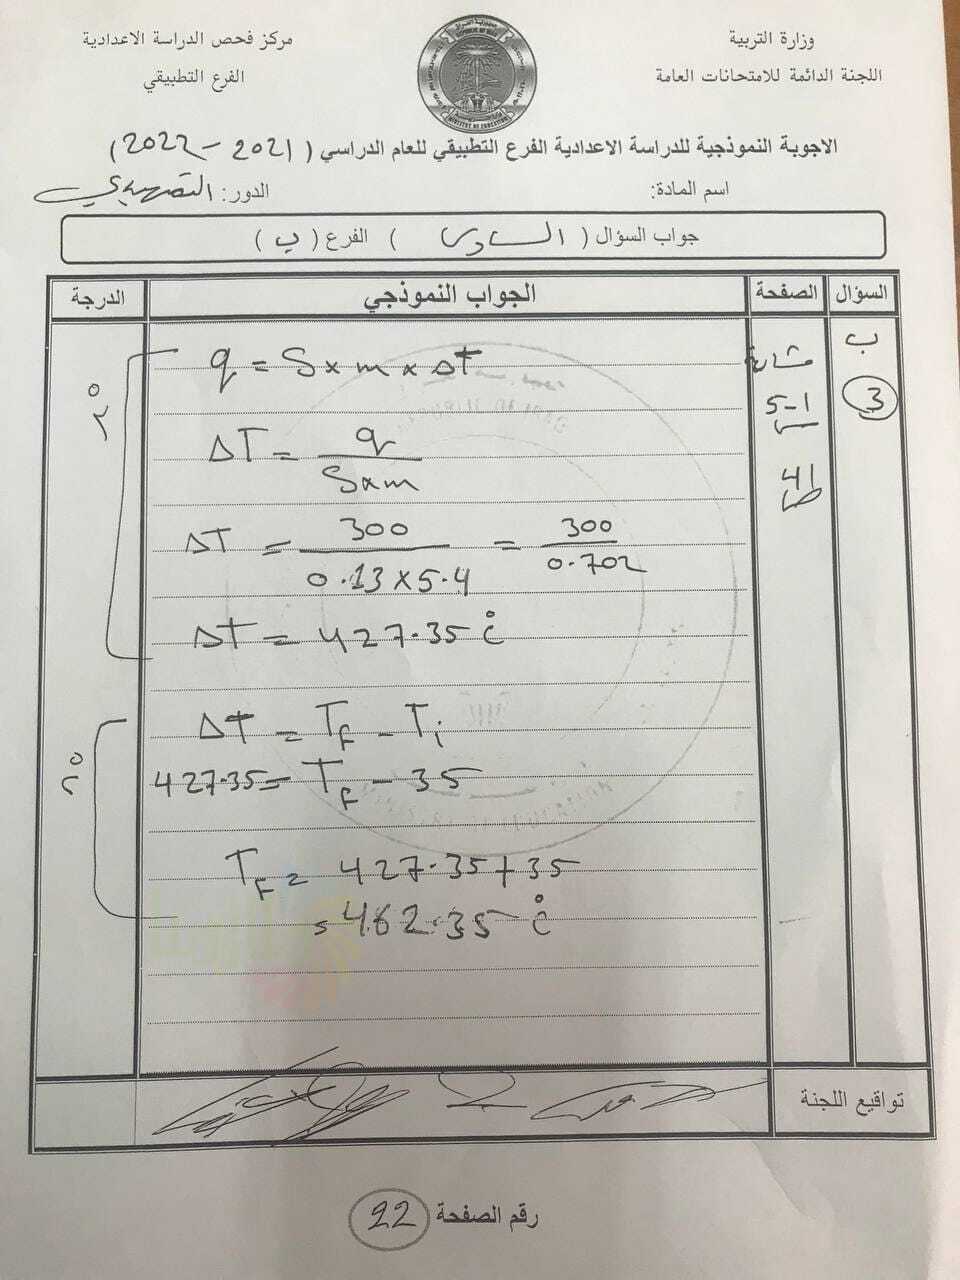 وزارة التربية
اللجنة الدائمة للامتحانات العامة
مركز فحص الدراسة الاعدادية
الفرع التطبيقي
الاجوبة النموذجية للدراسة الاعدادية الفرع التطبيقي للعام الدراسي (2021 – 2022)
اسم المادة:
الدور: التمهيدي
جواب السؤال ( السادس ) الفرع ( ب )
السؤال الصفحة الجواب النموذجي الدرجة
ب
3
مشابه
5-1
ص 41
q = S × m × Δt
ΔT = q / S×m
ΔT = 300 / 0.13×5.4 = 300 / 0.702
ΔT = 427.35 °C
Δt = Tf – Ti
427.35 = Tf – 35
Tf = 427.35 + 35
= 462.35 °C
تواقيع اللجنة
رقم الصفحة 22